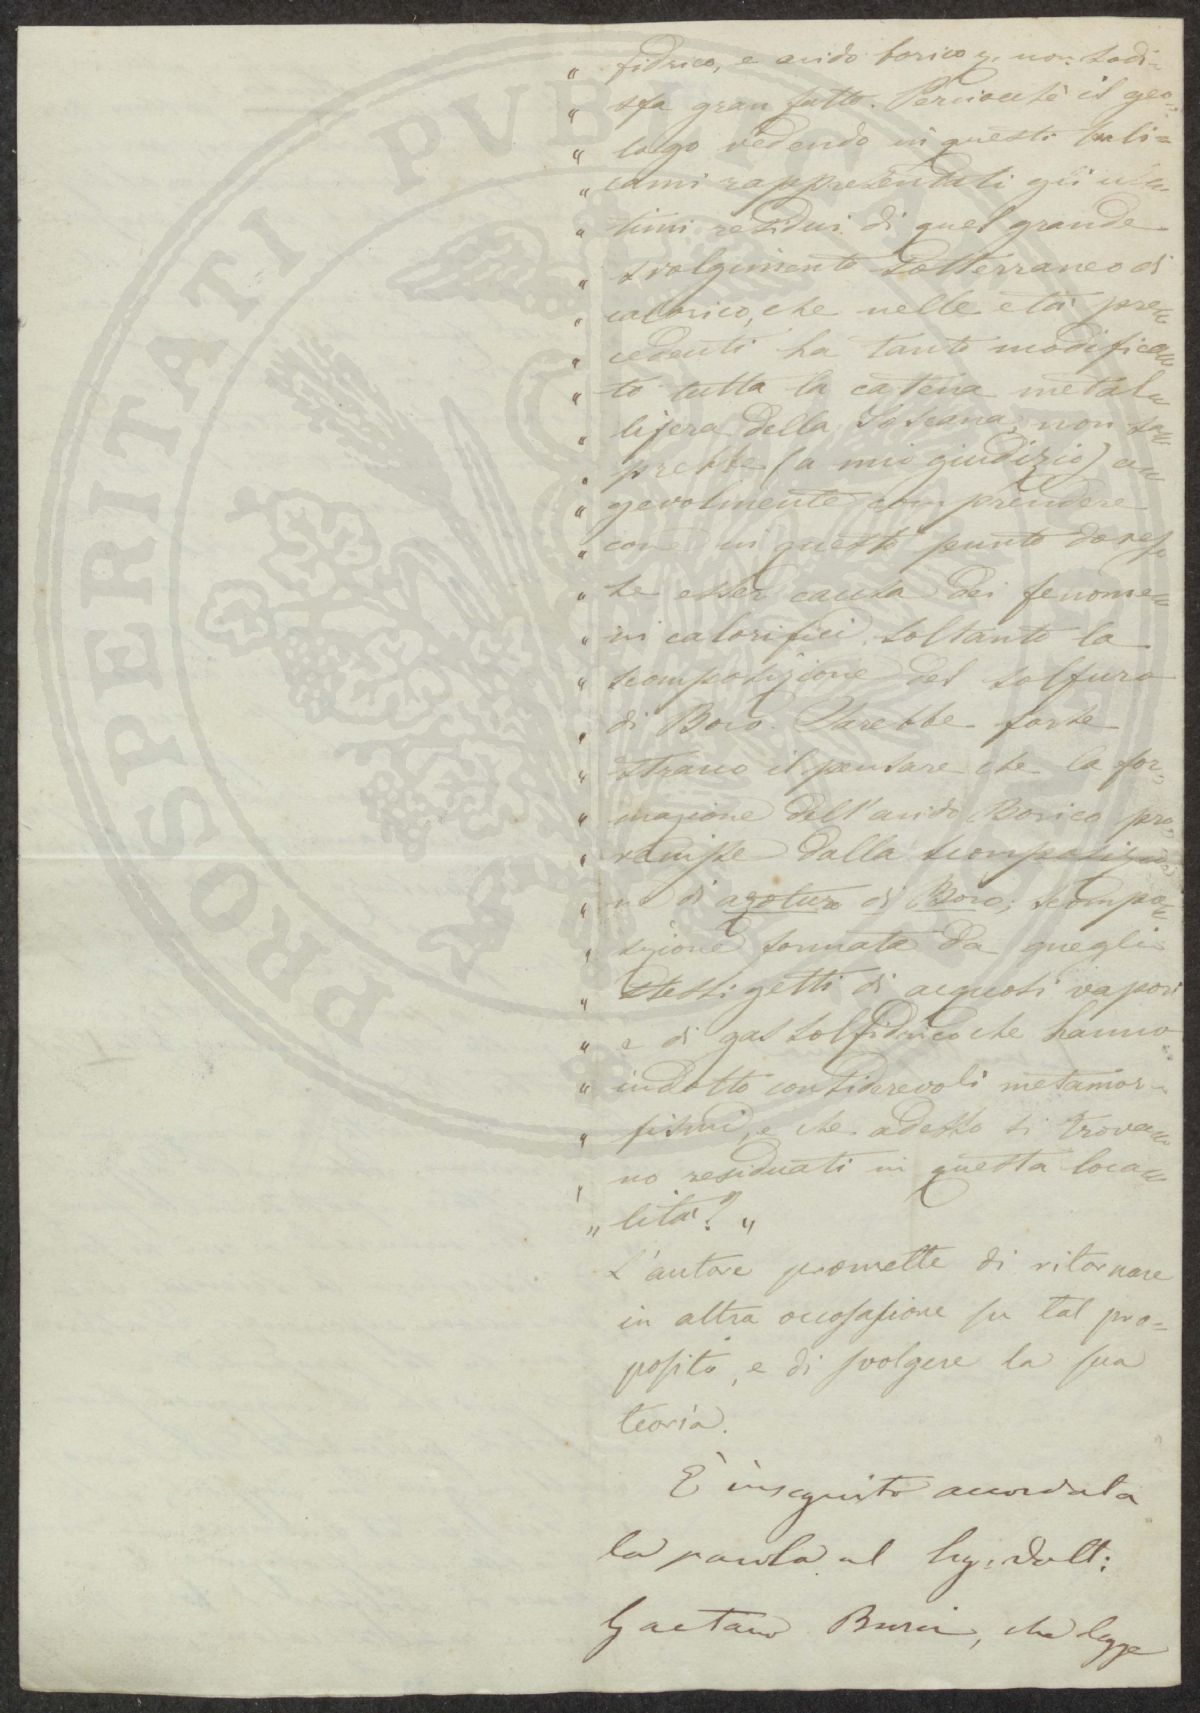 „ fidrico, e acido borico, non sodi-
„ sfa gran fatto. Perciocchè il geo-
„ logo vedendo in questi buli=
„ cami rappresentati gli ul-
„ timi residui di quel grande
„ svolgimento sotterraneo di
„ calorico, che nelle età pre=
„ cedenti ha tanto modifica=
„ to tutta la catena metal=
„ lifera della Toscana, non sa=
„ prebbe (a mio giudizio) a=
„ gevolmente comprendere
„ come in questo punto dovesse
„ esser causa dei fenome=
„ ni calorifici soltanto la
„ scomposizione del solfuro
„ di Boro. Sarebbe forse
„ strano il pensare che la for-
„ mazione dell'acido Borico pro-
„ venisse dalla scomposizio-
„ ne di azoturo di Boro; scompo=
„ sizione formata da quegli
„ stessi getti di acquosi vapori
„ e di gas solfidrico che hanno
„ indotto considerevoli metamor-
„ fismi, e che adesso si trova=
„ no residuati in questa loca=
„ lità? „
L'autore promette di ritornare
in altra occasione su tal pro=
posito, e di svolgere la sua
teoria.
È inseguito accordata
la parola al Sig. Dott:
Gaetano che legge
PROSPERITATI PVBLICAE